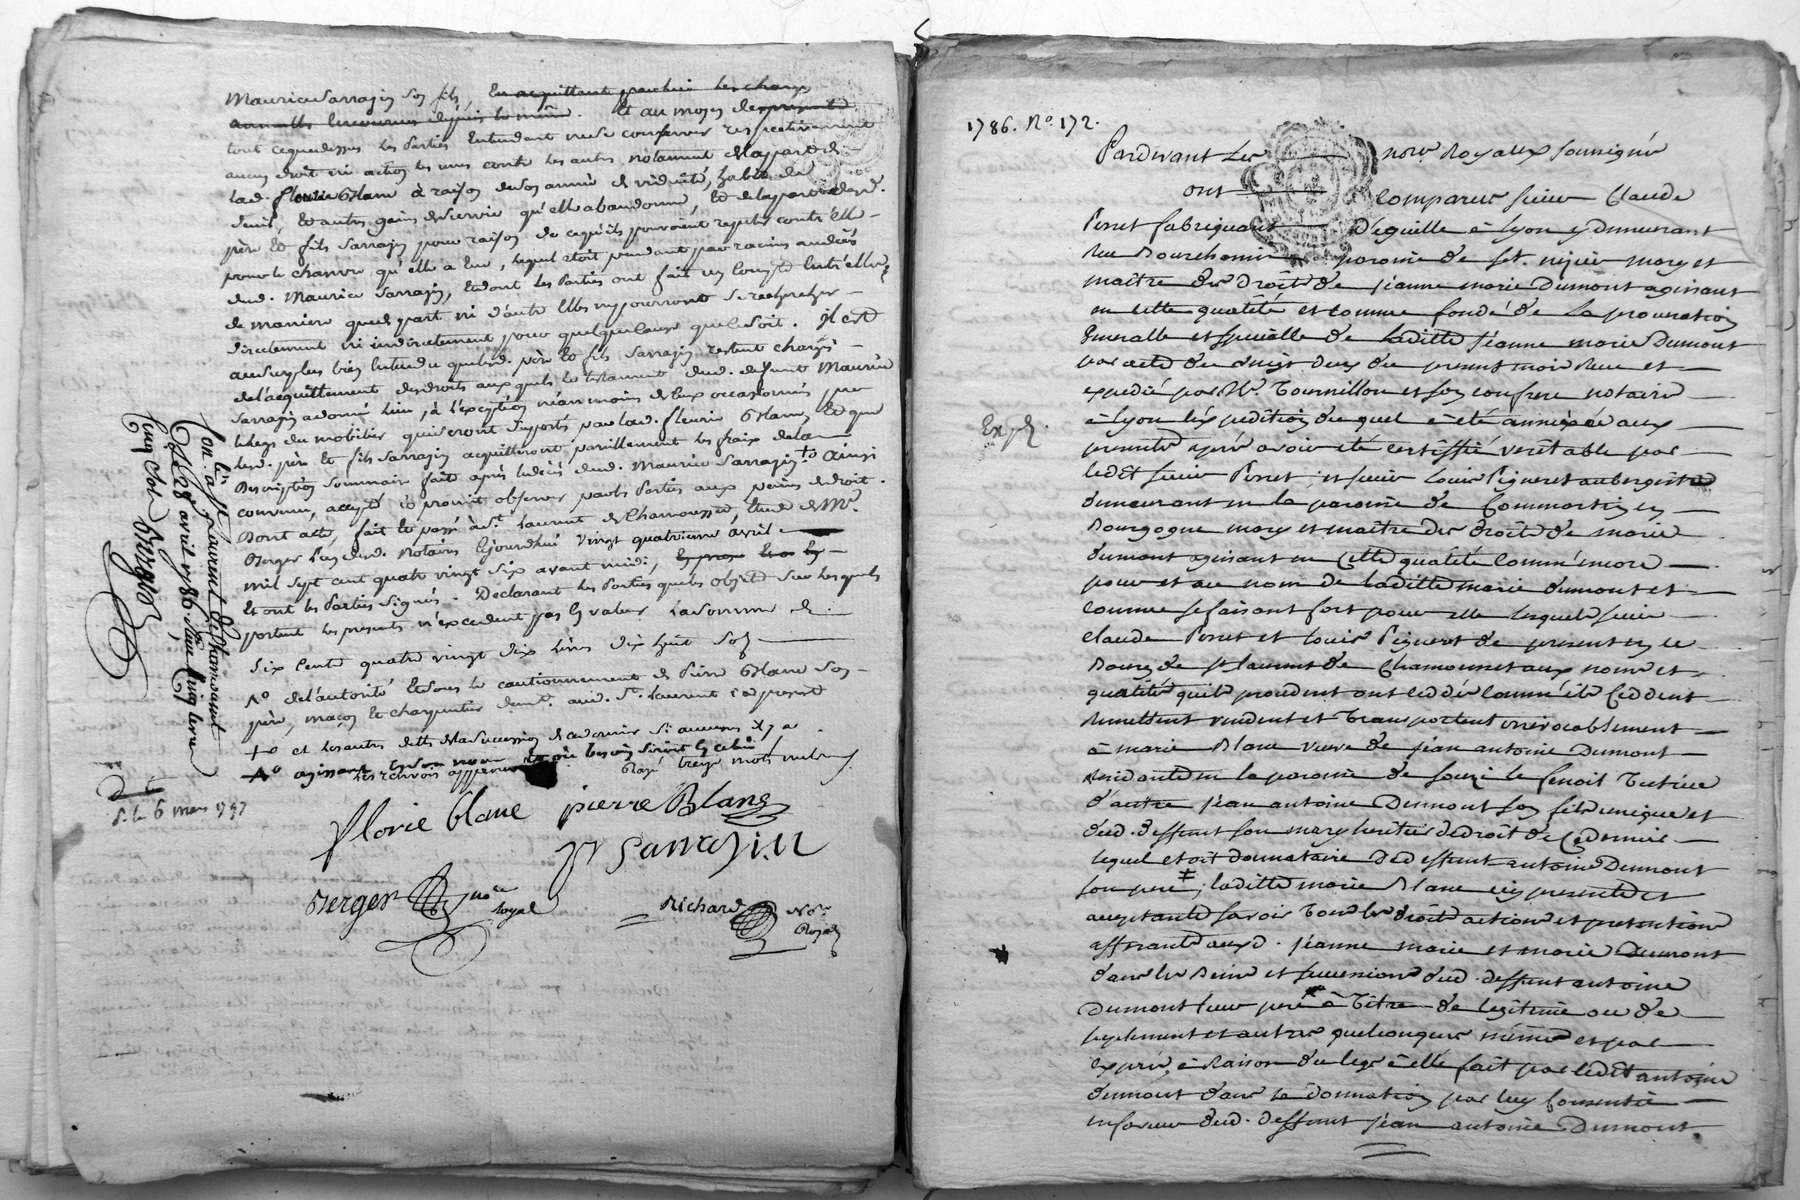 Maurice Sarrazin son fils, en acquittant par lui les charges
annuelles encourues depuis le même. Et au moyen des présentes
tout ce que dessus les Parties Entendant ne se conserver respectivement
aucun droit ni action les uns contre les autres notament de la part de
lad. fleurie Blanc à raison de son année de viduité, habits de
deuil, et autres gains de survie qu'elle abandonne, et de la part desd.
père et fils Sarrazin pour raison de ce qu'ils pourroient repeter contr'elle
pour le chanvre qu'elle a eu, lequel etoit pendant par racines au décès
dud. Maurice Sarrazin, et dont les Parties ont fait un compte entr'elles
de maniere que de part ni d'autre elles ne pourront se rechercher
directement ni indirectement pour quelque cause que ce soit. Il est
au surplus bien entendu que lesd. père et fils Sarrazin restent chargés
de l'acquittement des droits auxquels le testament dud. defunt Maurice
Sarrazin a donné lieu, à l'exception néanmoins de ceux occasionnés par
le legs du mobilier qui seront suportés par lad. fleurie Blanc, et que
lesd. père et fils Sarrazin acquitteront pareillement les frais de la
Description sommaire faite après le décès dud. Maurice Sarrazin. ainsi
convenu, accepté et promis observer par les Parties aux peines de droit.
Dont acte, fait et passé à St. Laurent de Chamousset, Etude de Me.
Berger l'un desd. Notaires Cejourdhui vingt quatrieme avril
mil sept cent quatre vingt six avant midi,
Et ont les Parties signés. Declarant les Parties que les objets sur lesquels
portent les presentes n'excedent pas en valeur la somme de
Six Cents quatre vingt dix livres dix huit sols
de l'autorité et sous le cautionnement de Pierre Blanc son
père, maçon et charpentier demt. aud. St. Laurent ici present
+° et les autres dettes de la succession de ce dernier si aucunes il y a
les renvois approuvés Rayé treize mots nuls
florie blanc pierre Blanc
Sarrazin
Berger nore royal
Richard Nore Royal
Con. lé à St Laurent de Chamousset
le 28 avril 1786. Reçu Cinq livres
cinq sols Berger
P. le 6 mars 1757
1786. No. 172.
Expé.
Pardevant les nores. Royaux soussignés
ont comparu sieur Claude
Perret fabriquant d'eguille à Lyon y demeurant
Rue Bourchanin paroisse de St. nizier mary et
maître des droits de jeanne marie Dumont agissant
en cette qualité et comme fondé de la procuration
Generalle et specialle de laditte jeanne marie Dumont
par acte du vingt deux du present mois Reçu et
expedié par Me. Tournillon et son confrere notaire
à Lyon l'expedition du quel à eté annexée aux
presentes apres avoir eté certiffié veritable par
ledit sieur Perret; et sieur Louis Pigneret aubergiste
demeurant en la paroisse de Commortin en
Bourgogne mary et maître des droits de marie
dumont agissant en cette qualité comm'encore
pour et au nom de laditte marie dumont et
comme se faisant fort pour elle lesquels sieur
Claude Perret et Louis Pigneret de present en ce
Bourg de St laurent de Chamousset aux noms et
qualités qu'ils procedent ont ceddé comm'ils Ceddent
Remettent vendent et Transportent irrevocablement
à marie Blanc veuve de jean antoine Dumont
Residante en la paroisse de souzi le benoit Tutrice
d'autre jean antoine Dumont son fils unique et
dud. deffunt son mary heritier de droit de ce dernier
lequel etoit donnataire dud deffunt antoine Dumont
son pere ‡; laditte marie Blanc icy presente et
acceptante savoir Tous les droits actions et pretentions
afferants auxd. jeanne marie et marie Dumont
dans les Biens et successions dud. deffunt antoine
Dumont leur pere à Titre de legitime ou de
suplement et autres quelconques même et par
exprés, à Raison du legs à elle fait par ledit antoine
dumont dans la donnation par luy Consentie
en faveur dud. deffunt jean antoine Dumont